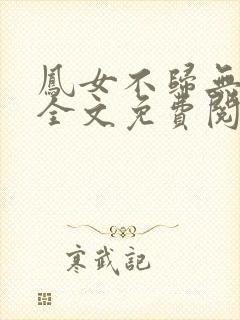 鳳女不歸無
全文免費閱
寒武記